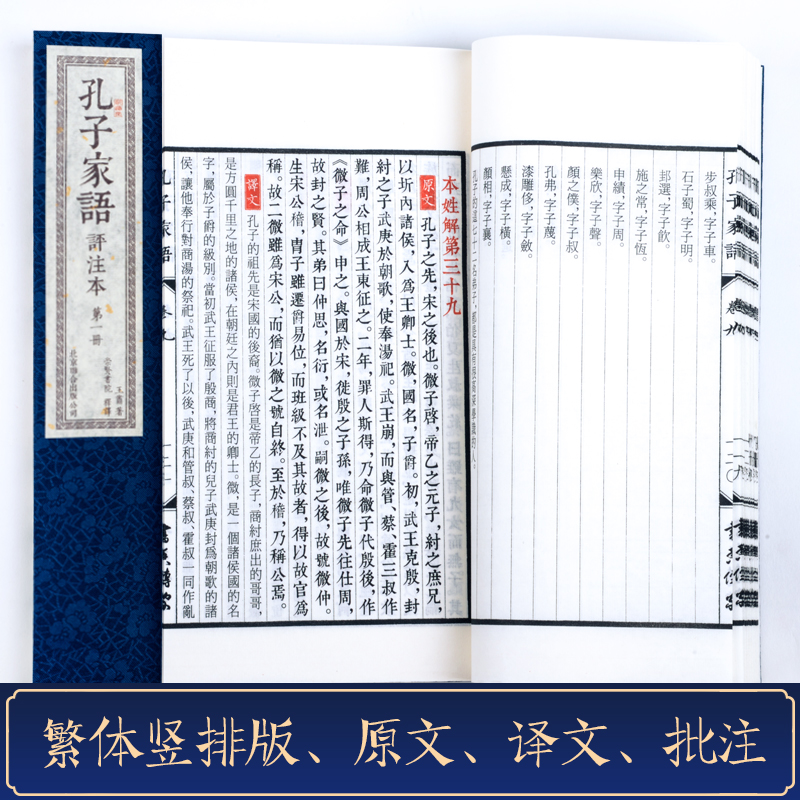 孔子家語
評注本
第一冊
王肅著
崇賢書院 釋譯
北京聯合出版公司
步叔乘，字子車。
石子蜀，字子明。
邽選，字子飲。
施之常，字子恆。
申績，字子周。
樂欣，字子聲。
顏之僕，字子叔。
孔弗，字子蔑。
漆雕侈，字子斂。
懸成，字子橫。
顏相，字子襄。
本姓解第三十九
原文 孔子之先，宋之後也。微子啓，帝乙之元子，紂之庶兄，
以圻內諸侯，入爲王卿士。微，國名，子爵。初，武王克殷，封
紂之子武庚於朝歌，使奉湯祀。武王崩，而與管、蔡、霍三叔作
難，周公相成王東征之。二年，罪人斯得，乃命微子代殷後，作
《微子之命》申之。與國於宋，徙殷之子孫，唯微子先往仕周，
故封之賢。其弟曰仲思，名衍，或名泄。嗣微之後，故號微仲。
生宋公稽，胄子雖遷爵易位，而班級不及其故者，得以故官爲
稱。故二微雖爲宋公，而猶以微之號自終。至於稽，乃稱公焉。
譯文 孔子的祖先是宋國的後裔。微子啓是帝乙的長子，商紂庶出的哥哥，
是方圓千里之地的諸侯，在朝廷之內則是君王的卿士。微，是一個諸侯國的名
字，屬於子爵的級別。當初武王征服了殷商，將商紂的兒子武庚封爲朝歌的諸
侯，讓他奉行對商湯的祭祀。武王死了以後，武庚和管叔、蔡叔、霍叔一同作亂
孔子家語
卷九
繁体竖排版、原文、译文、批注